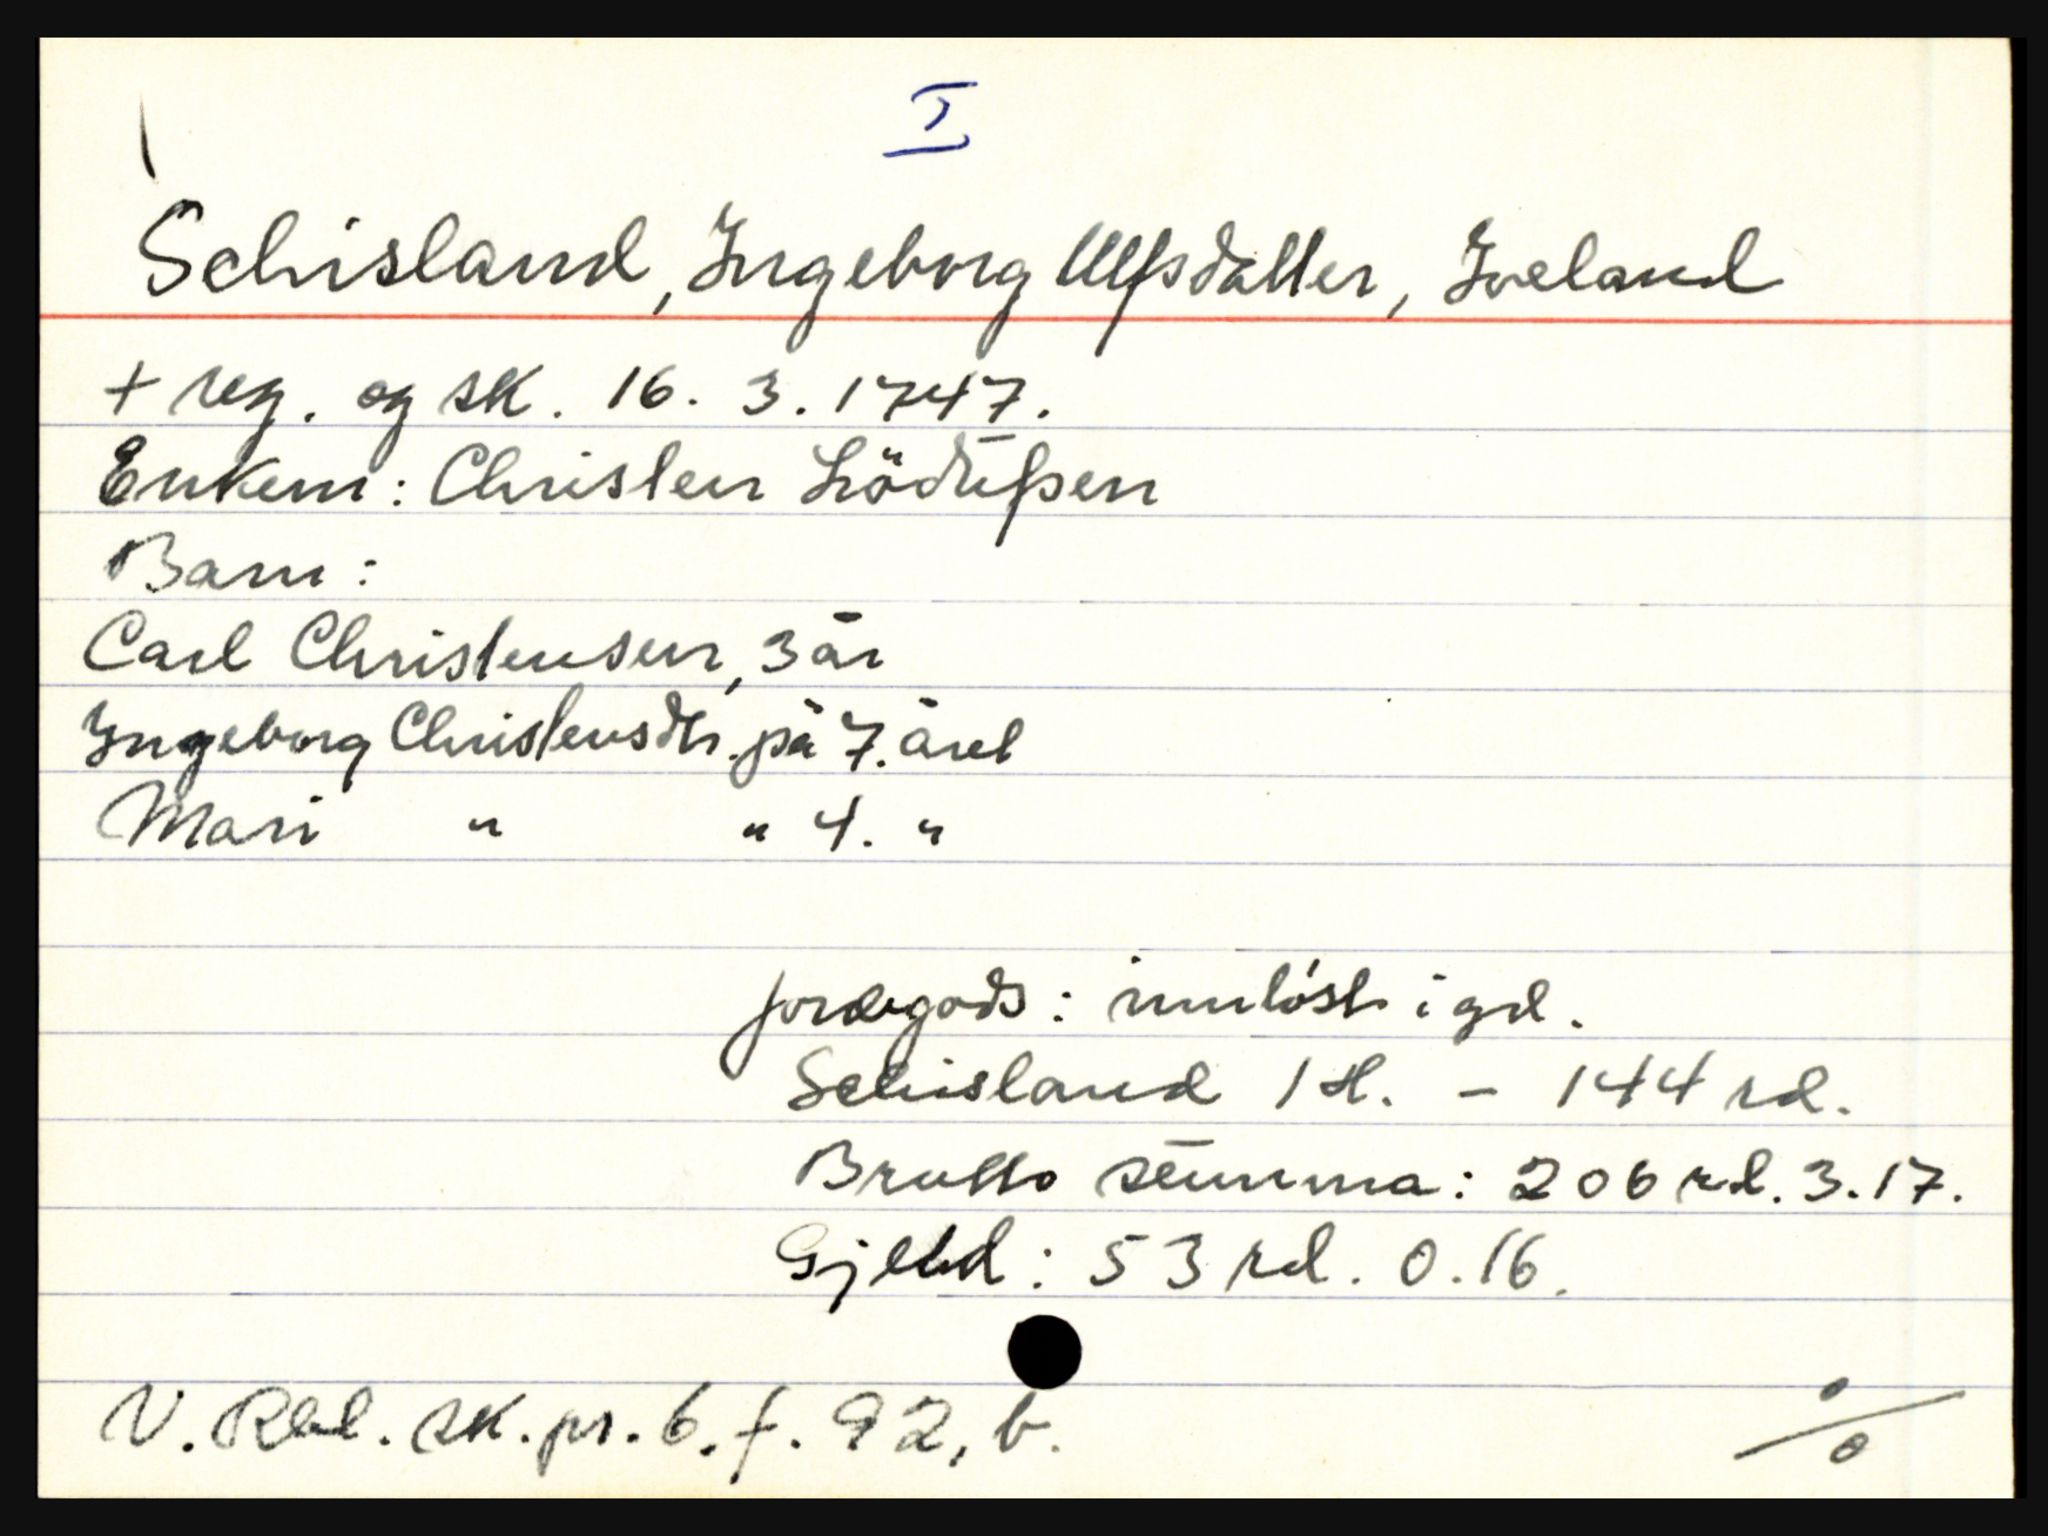 I
Schisland, Ingeborg Ulfsdatter, Iveland
+ reg. og sk. 16. 3. 1747.
Enkem: Christen Lödŭfsen
Barn:
Carl Christensen, 3 år
Ingeborg Christensdtr. på 7. året
Mari " " 4. "
jordegods: innlöst i grd.
Schisland 1 H. - 144 rd.
Brutto sŭmma: 206 rd. 3. 17.
Gjeld: 53 rd. 0. 16.
V. Rbd. sk. pr. 6. f. 92, b.
%